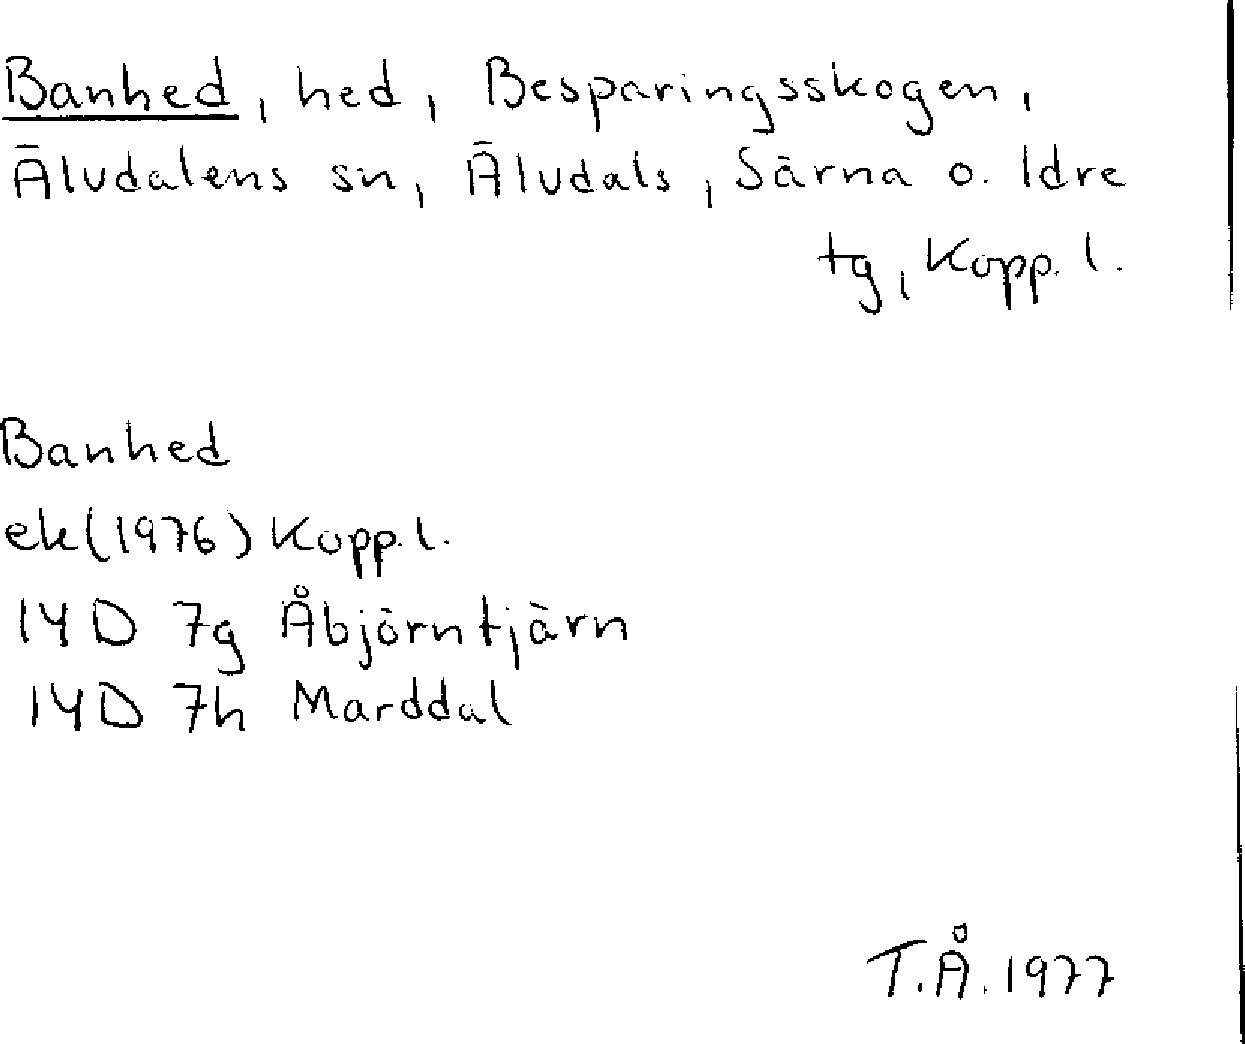 Banhed, hed, Besparingsskogen,
Älvdalens sn, Älvdals, Särna o. Idre
tg, Kopp. l.
Banhed
ek (1976) Kopp. l.
14D 7g Åbjörntjärn
14D 7h Marddal
T.Å. 1977